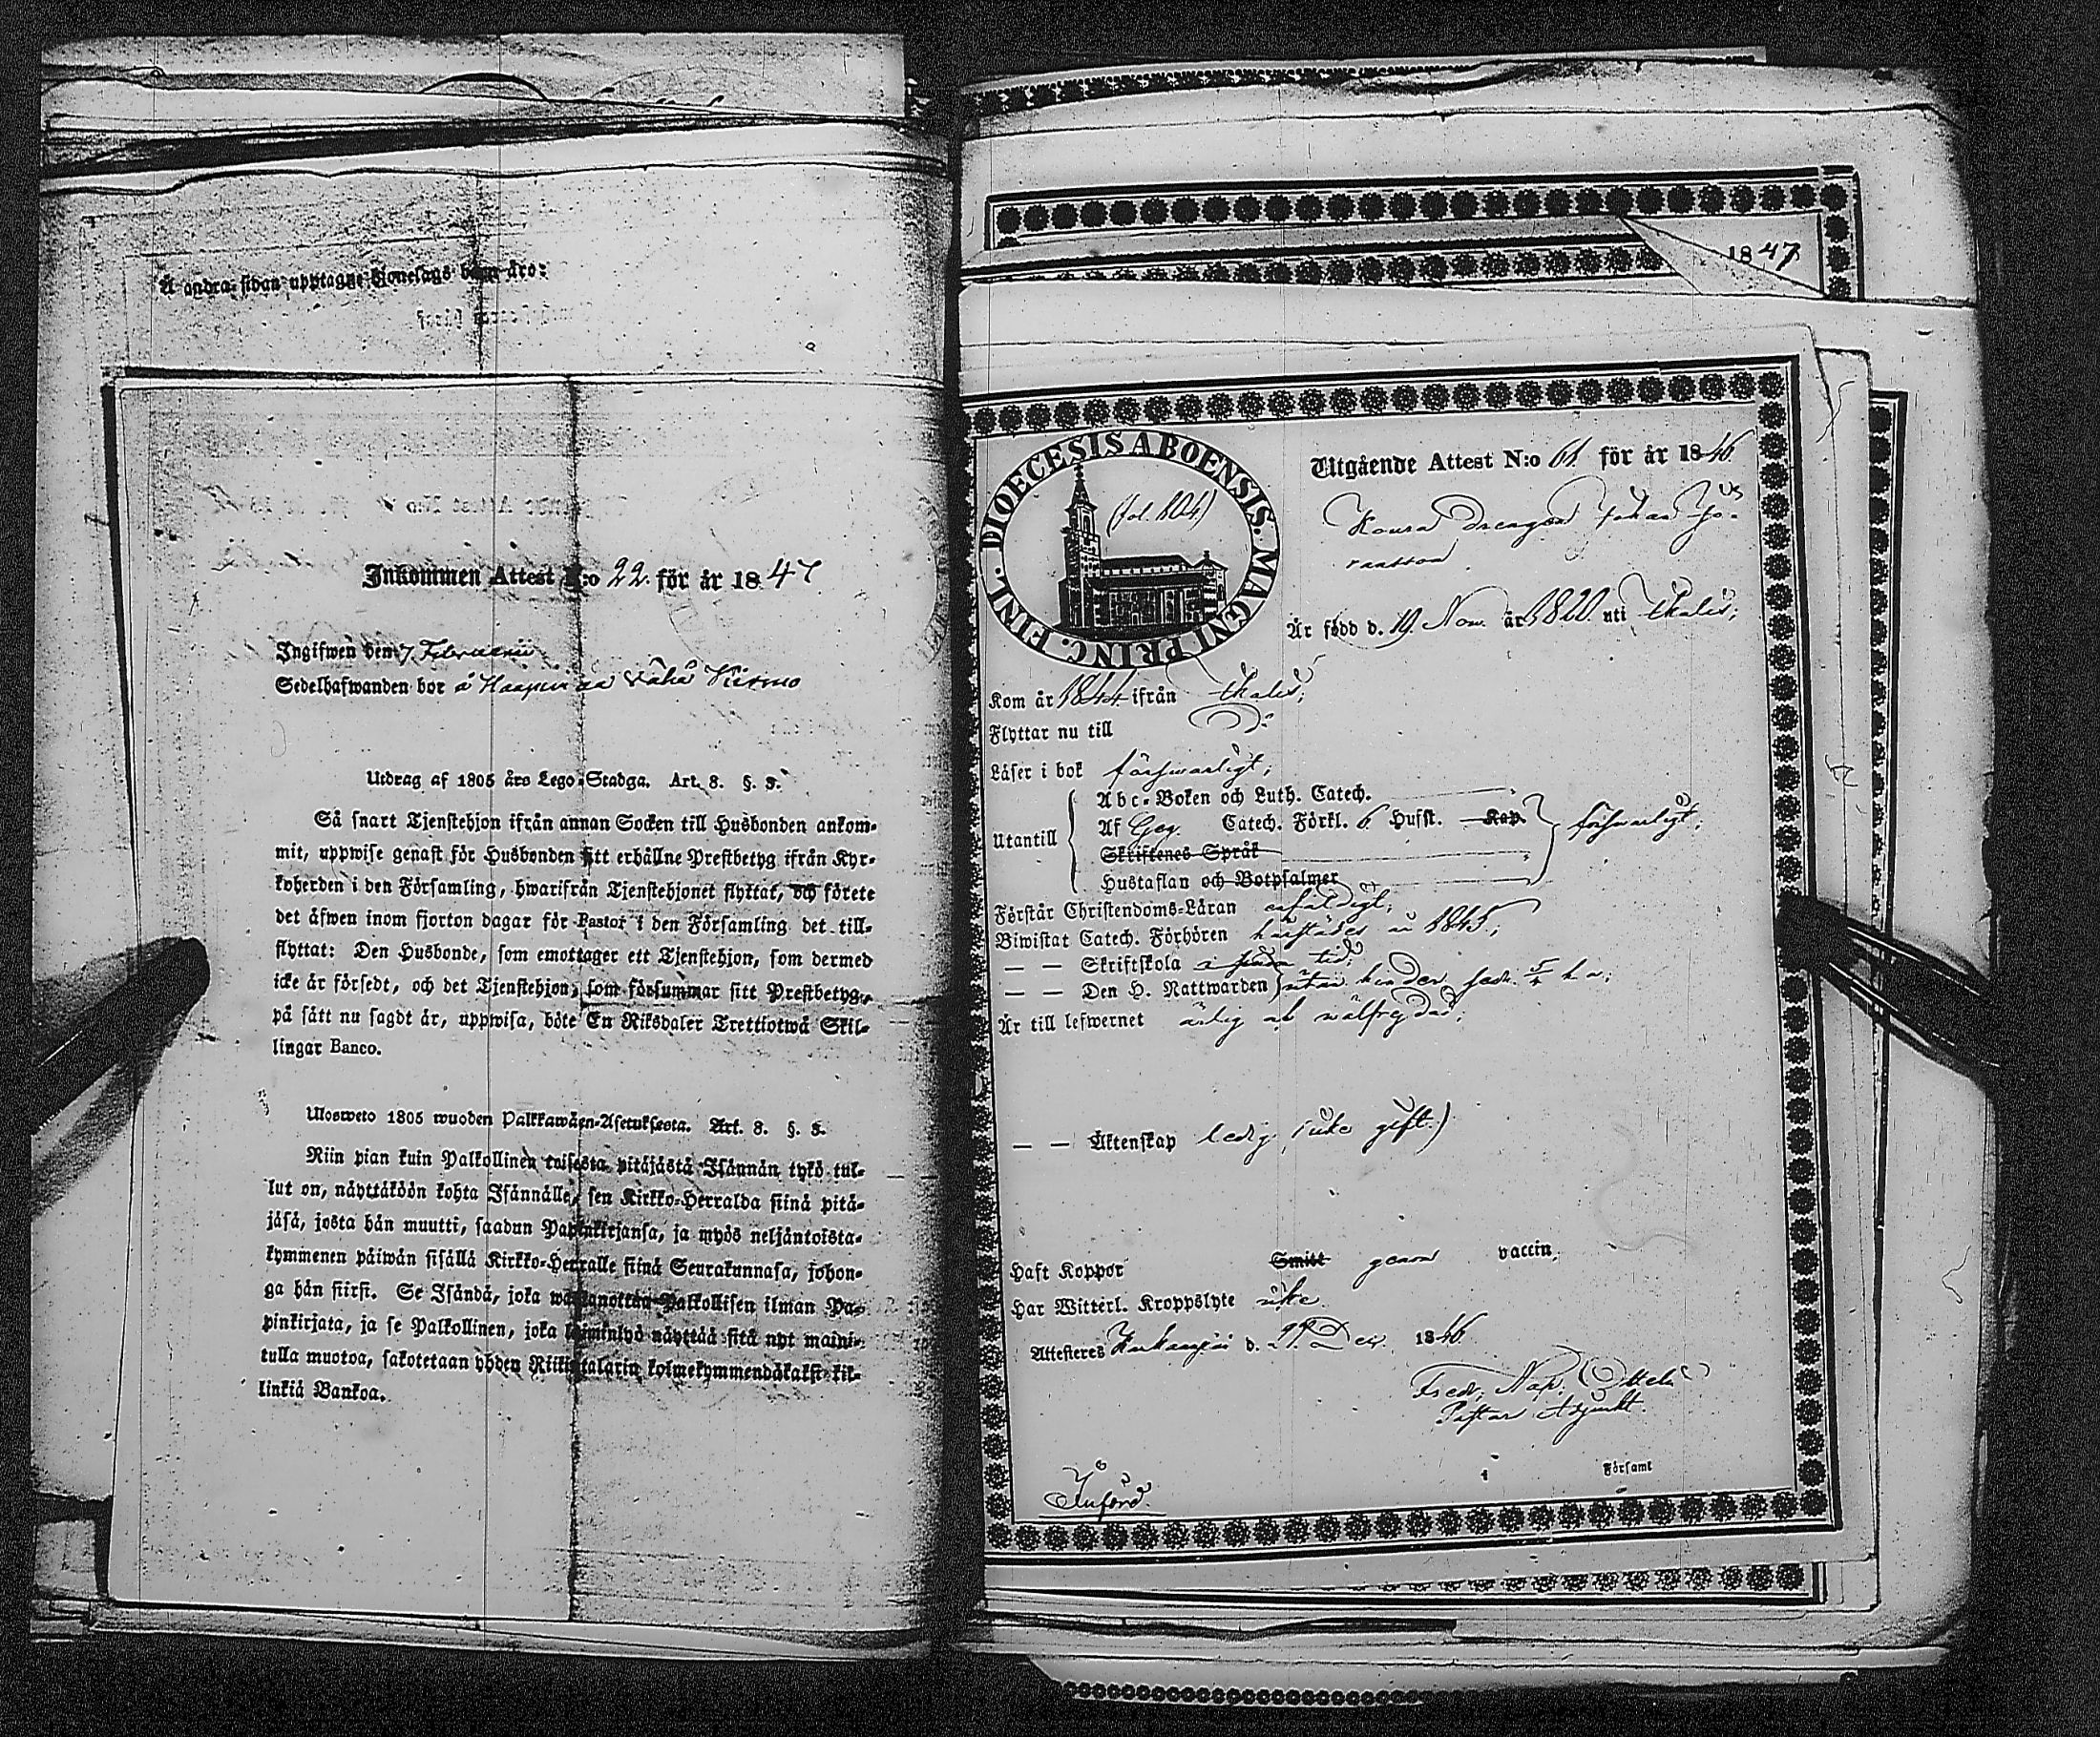 Å andra sidan upptagne
Inkommen Attest N:o 22. för år 1847
Ingifwen den 7 Februarii
Sedelhafwanden bor å Haapimaa Vähä Kirmo
Utdrag af 1805 års Lego-Stadga. Art. 8. §. 3.
Så snart Tjenstehjon ifrån annan Socken till Husbonden ankom-
mit, uppwise genast för Husbonden sitt erhållne Prestbetyg ifrån Kyr-
koherden i den Församling, hwarifrån Tjenstehjonet flyttat, och förete
det äfwen inom fjorton dagar för Pastor i den Församling det till-
flyttat: Den Husbonde, som emottager ett Tjenstehjon, som dermed
icke är försedt, och det Tjenstehjon, som försummar sitt Prestbetyg,
på sått nu sagdt är, uppwisa, böte En Riksdaler Trettiotwå Skil-
lingar Banco.
Ulosweto 1805 wuoden Palkkawäen-Asetuksesta. Art. 8. §. 3.
Niin pian kuin Palkollinen toisesta pitäjästä Isännän tykö tul-
lut on, näyttäköön kohta Isännälle, sen Kirkko-Herralda siinä pitä-
jäsä, josta hän muutti, saadun Papinkirjansa, ja myös neljäntoista-
kymmenen päiwän sisällä Kirkko-Herralle siinä Seurakunnasa, johon-
ga hän siirsi. Se Isändä, joka wastanottaa Palkollisen ilman Pa-
pinkirjata, ja se Palkollinen, joka laiminlyö näyttää sitä nyt maini-
tulla muotoa, sakotetaan yhden Riikintalarin kolmekymmendäkaksi kil-
linkiä Bankoa.
1847
DIOECESIS ABOENSIS. MAGNI PRINC. FINL.
(fol. 804)
Utgående Attest N:o 61. för år 1846.
Drengen Johan Jö-
ransson
Är född d. 19. Nov. år 1820 uti Ikalis;
Kom år 1844 ifrån Ikalis;
Flyttar nu till D:o
Läser i bok förswarligt;
Utantill
Abc-Boken och Luth. Catech.
Af Gez. Catech. Förkl. 6 Husst. Kap.
Skriftenes Språk
Hustaflan och Botpsalmer
förswarligt;
Förstår Christendoms-Läran enfaldigt;
Biwistat Catech. Förhören härstädes år 1845;
— — Skriftskola i sinom tid;
— — Den H. Nattwarden utan hinder, sedn.
Är till lefwernet ärlig och wälfrejdad;
— — Äktenskap ledig (icke gift.)
Haft Koppor Smitt genom vaccin.
Har Witterl. Kroppslyte icke
Attesteres Kankaanpää d. 29. Dec. 1846
Fredr. Nap.
Pastors Adjunkt.
i Församl
Införd.